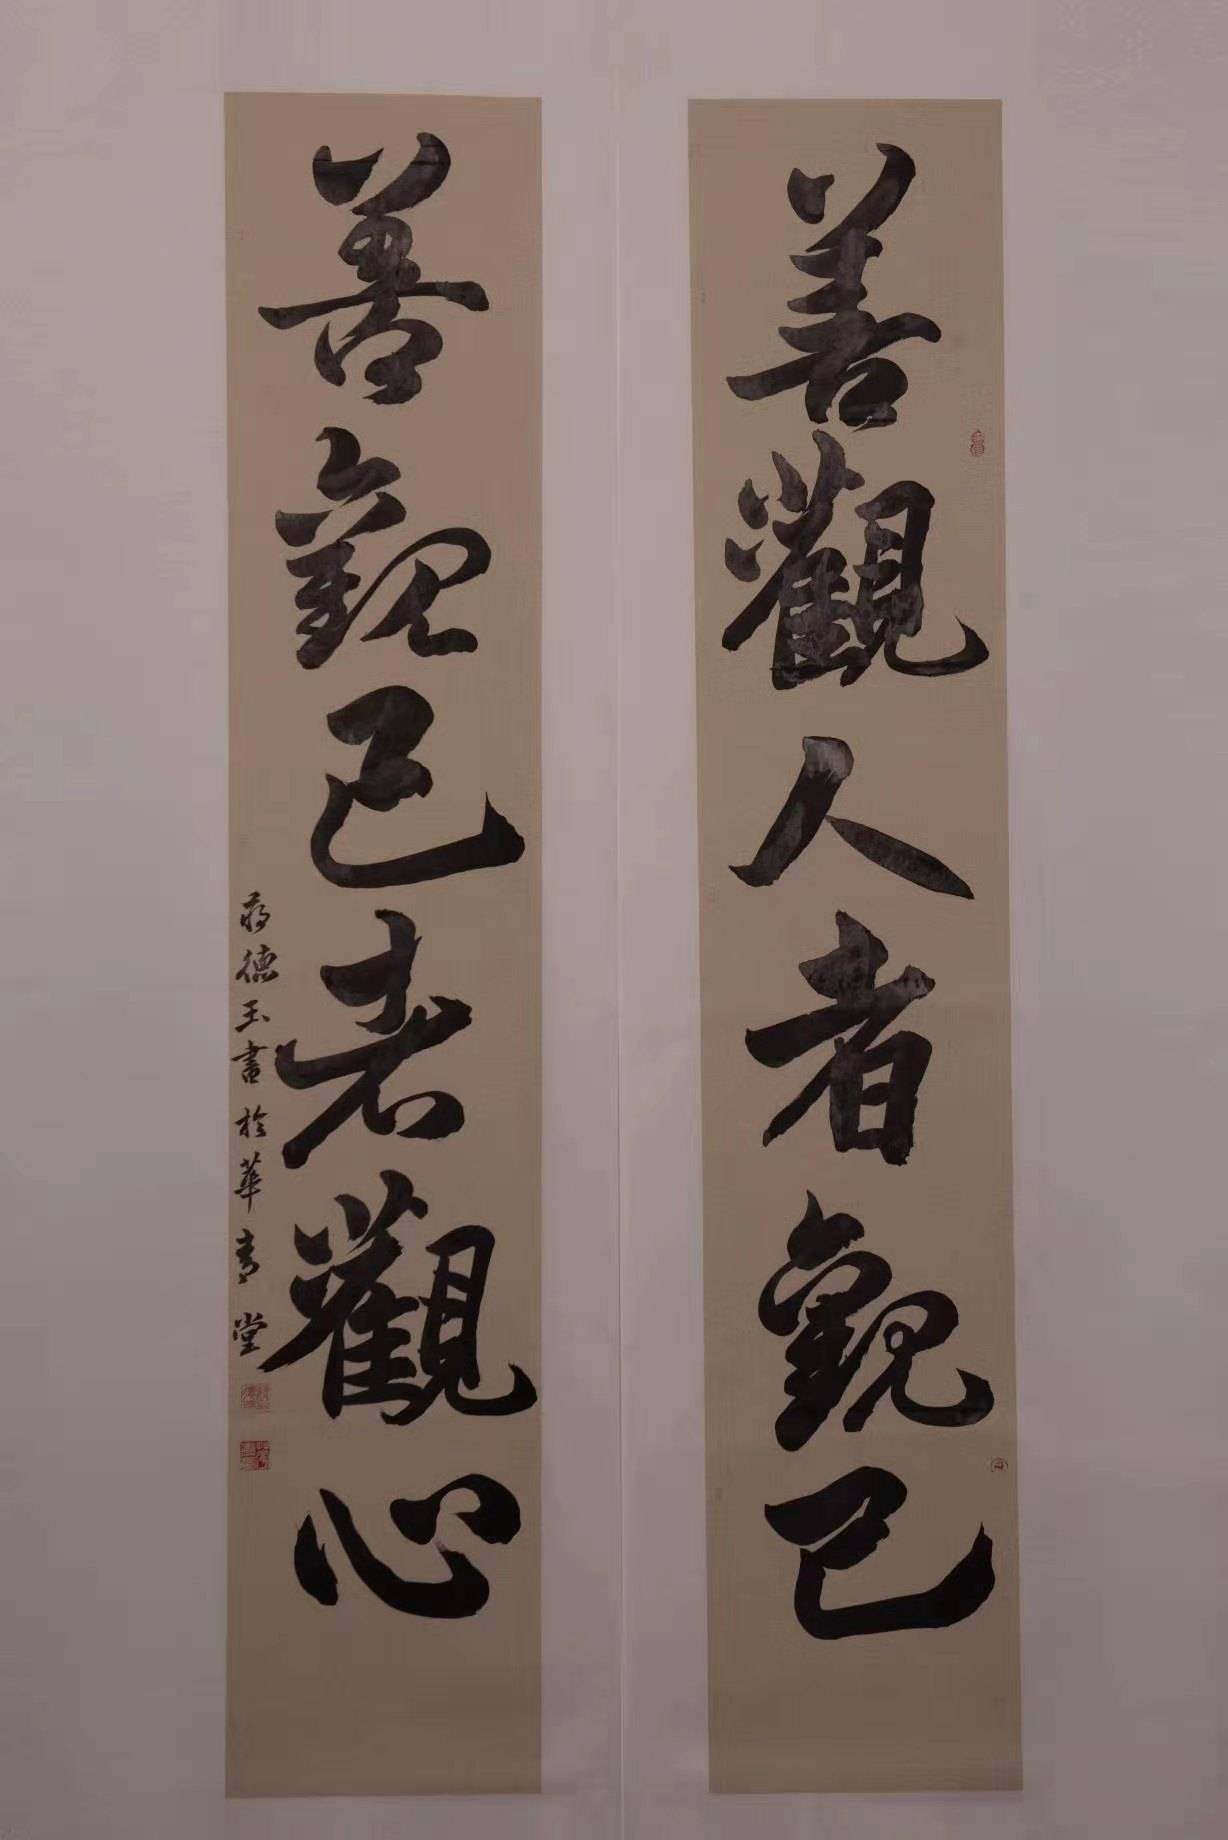 善觀人者觀己
善觀己者觀心
蔣德玉書於華青堂